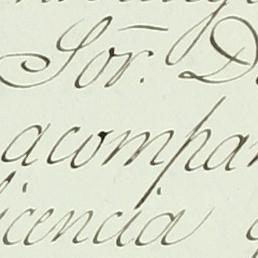 Sor. D
acompañ
icencia